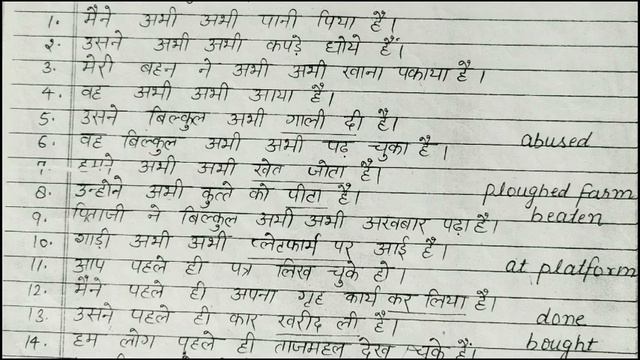 1. मैंने अभी अभी पानी पिया है।
2. उसने अभी अभी कपड़े धोये हैं।
3. मेरी बहन ने अभी अभी खाना पकाया है।
4. वह अभी अभी आया है।
5. उसने बिल्कुल अभी गाली दी है। abused
6. वह बिल्कुल अभी अभी पढ़ चुका है।
7. हमने अभी अभी खेत जोता है। ploughed farm
8. उन्होने अभी कुत्ते को पीटा है। beaten
9. पिताजी ने बिल्कुल अभी अभी अखबार पढ़ा है।
10. गाड़ी अभी अभी प्लेटफार्म पर आई है। at platform
11. आप पहले ही पत्र लिख चुके हो।
12. मैंने पहले ही अपना गृह कार्य कर लिया है। done
13. उसने पहले ही कार खरीद ली है। bought
14. हम लोग पहले ही ताजमहल देख चुके हैं।